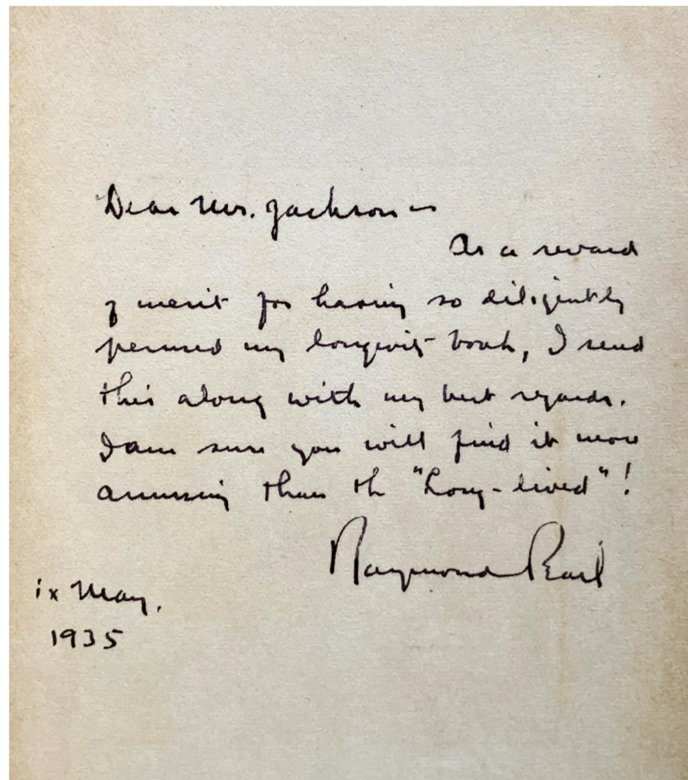 Dear Mrs. Jackson –
As a reward
of merit for having so diligently
perused my longevity book, I send
this along with my best regards.
I am sure you will find it more
amusing than the "Long-lived"!
Raymond Pearl
ix May.
1935